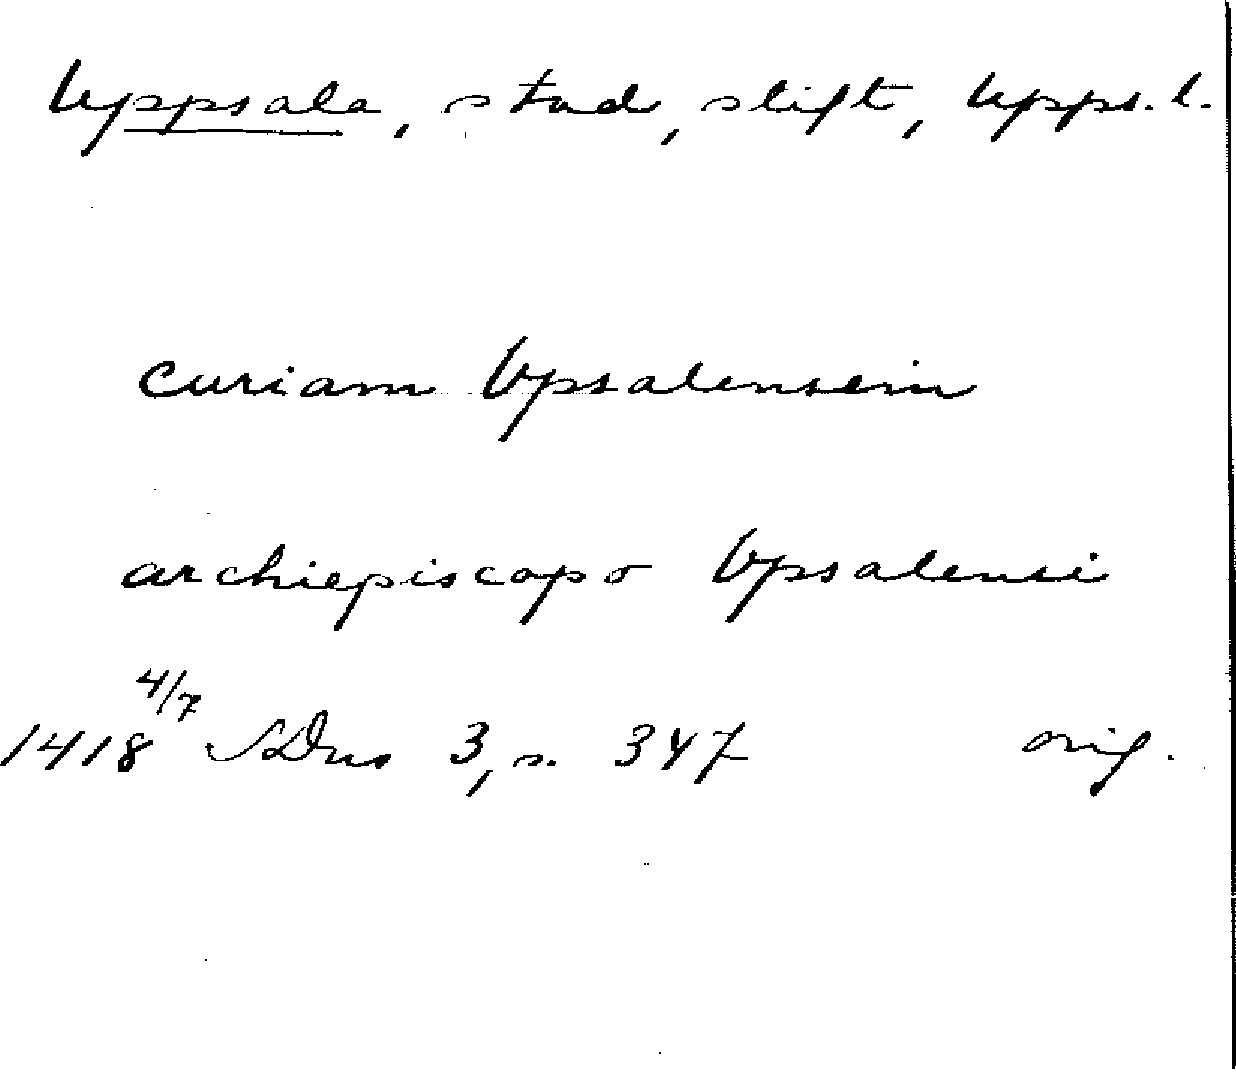 Uppsala, stad, stift, Upps. l.
curiam Vpsalensem
archiepiscopo Vpsalensi
1418 4/7 SDns 3, s. 347 orig.